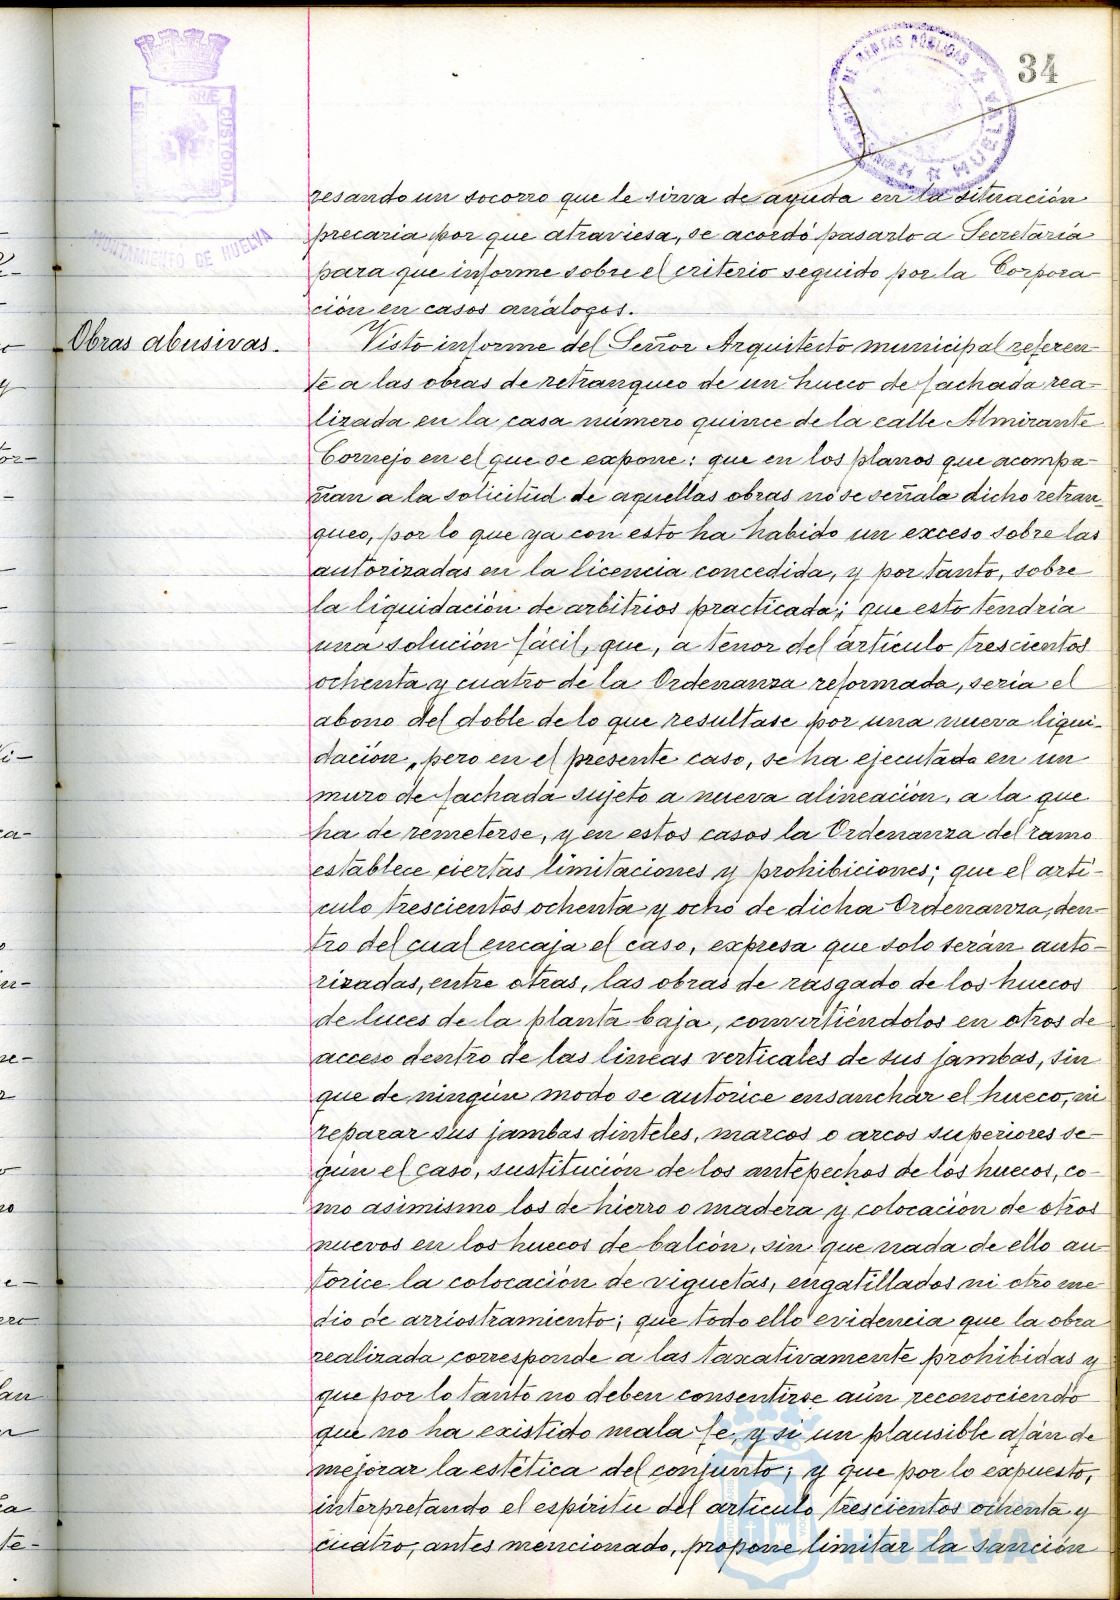 34
DE RENTAS PÚBLICAS
HUELVA
CUSTODIA
AYUNTAMIENTO DE HUELVA
resando un socorro que le sirva de ayuda en la situación
precaria por que atraviesa, se acordó pasarlo a Secretaría
para que informe sobre el criterio seguido por la Corpora-
ción en casos análogos.
Obras abusivas.
Visto informe del Señor Arquitecto municipal referen-
te a las obras de retranqueo de un hueco de fachada rea-
lizada en la casa número quince de la calle Almirante
Cornejo en el que se expone: que en los planos que acompa-
ñan a la solicitud de aquellas obras no se señala dicho retran-
queo, por lo que ya con esto ha habido un exceso sobre las
autorizadas en la licencia concedida, y por tanto, sobre
la liquidación de arbitrios practicada; que esto tendría
una solución fácil, que, a tenor del artículo trescientos
ochenta y cuatro de la Ordenanza reformada, sería el
abono del doble de lo que resultase por una nueva liqui-
dación, pero en el presente caso, se ha ejecutado en un
muro de fachada sujeto a nueva alineación, a la que
ha de remeterse, y en estos casos la Ordenanza del ramo
establece ciertas limitaciones y prohibiciones; que el artí-
culo trescientos ochenta y ocho de dicha Ordenanza, den-
tro del cual encaja el caso, expresa que solo serán auto-
rizadas, entre otras, las obras de rasgado de los huecos
de luces de la planta baja, convirtiéndolos en otros de
acceso dentro de las lineas verticales de sus jambas, sin
que de ningún modo se autorice ensanchar el hueco, ni
reparar sus jambas dinteles, marcos o arcos superiores se-
gún el caso, sustitución de los antepechos de los huecos, co-
mo asimismo los de hierro o madera y colocación de otros
nuevos en los huecos de balcón, sin que nada de ello au-
torice la colocación de viguetas, engatillados ni otro me-
dio de arriostramiento; que todo ello evidencia que la obra
realizada corresponde a las taxativamente prohibidas y
que por lo tanto no deben consentirse aún reconociendo
que no ha existido mala fe, y si un plausible afán de
mejorar la estética del conjunto; y que por lo expuesto,
interpretando el espíritu del artículo trescientos ochenta y
cuatro, antes mencionado, propone limitar la sanción
HUELVA